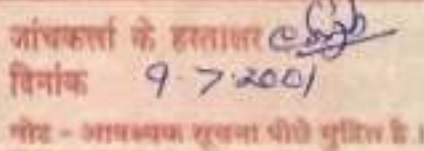 जांचकर्त्ता के हस्ताक्षर
दिनांक 9.7.2001
नोट - आवश्यक सूचना पीछे मुद्रित है।